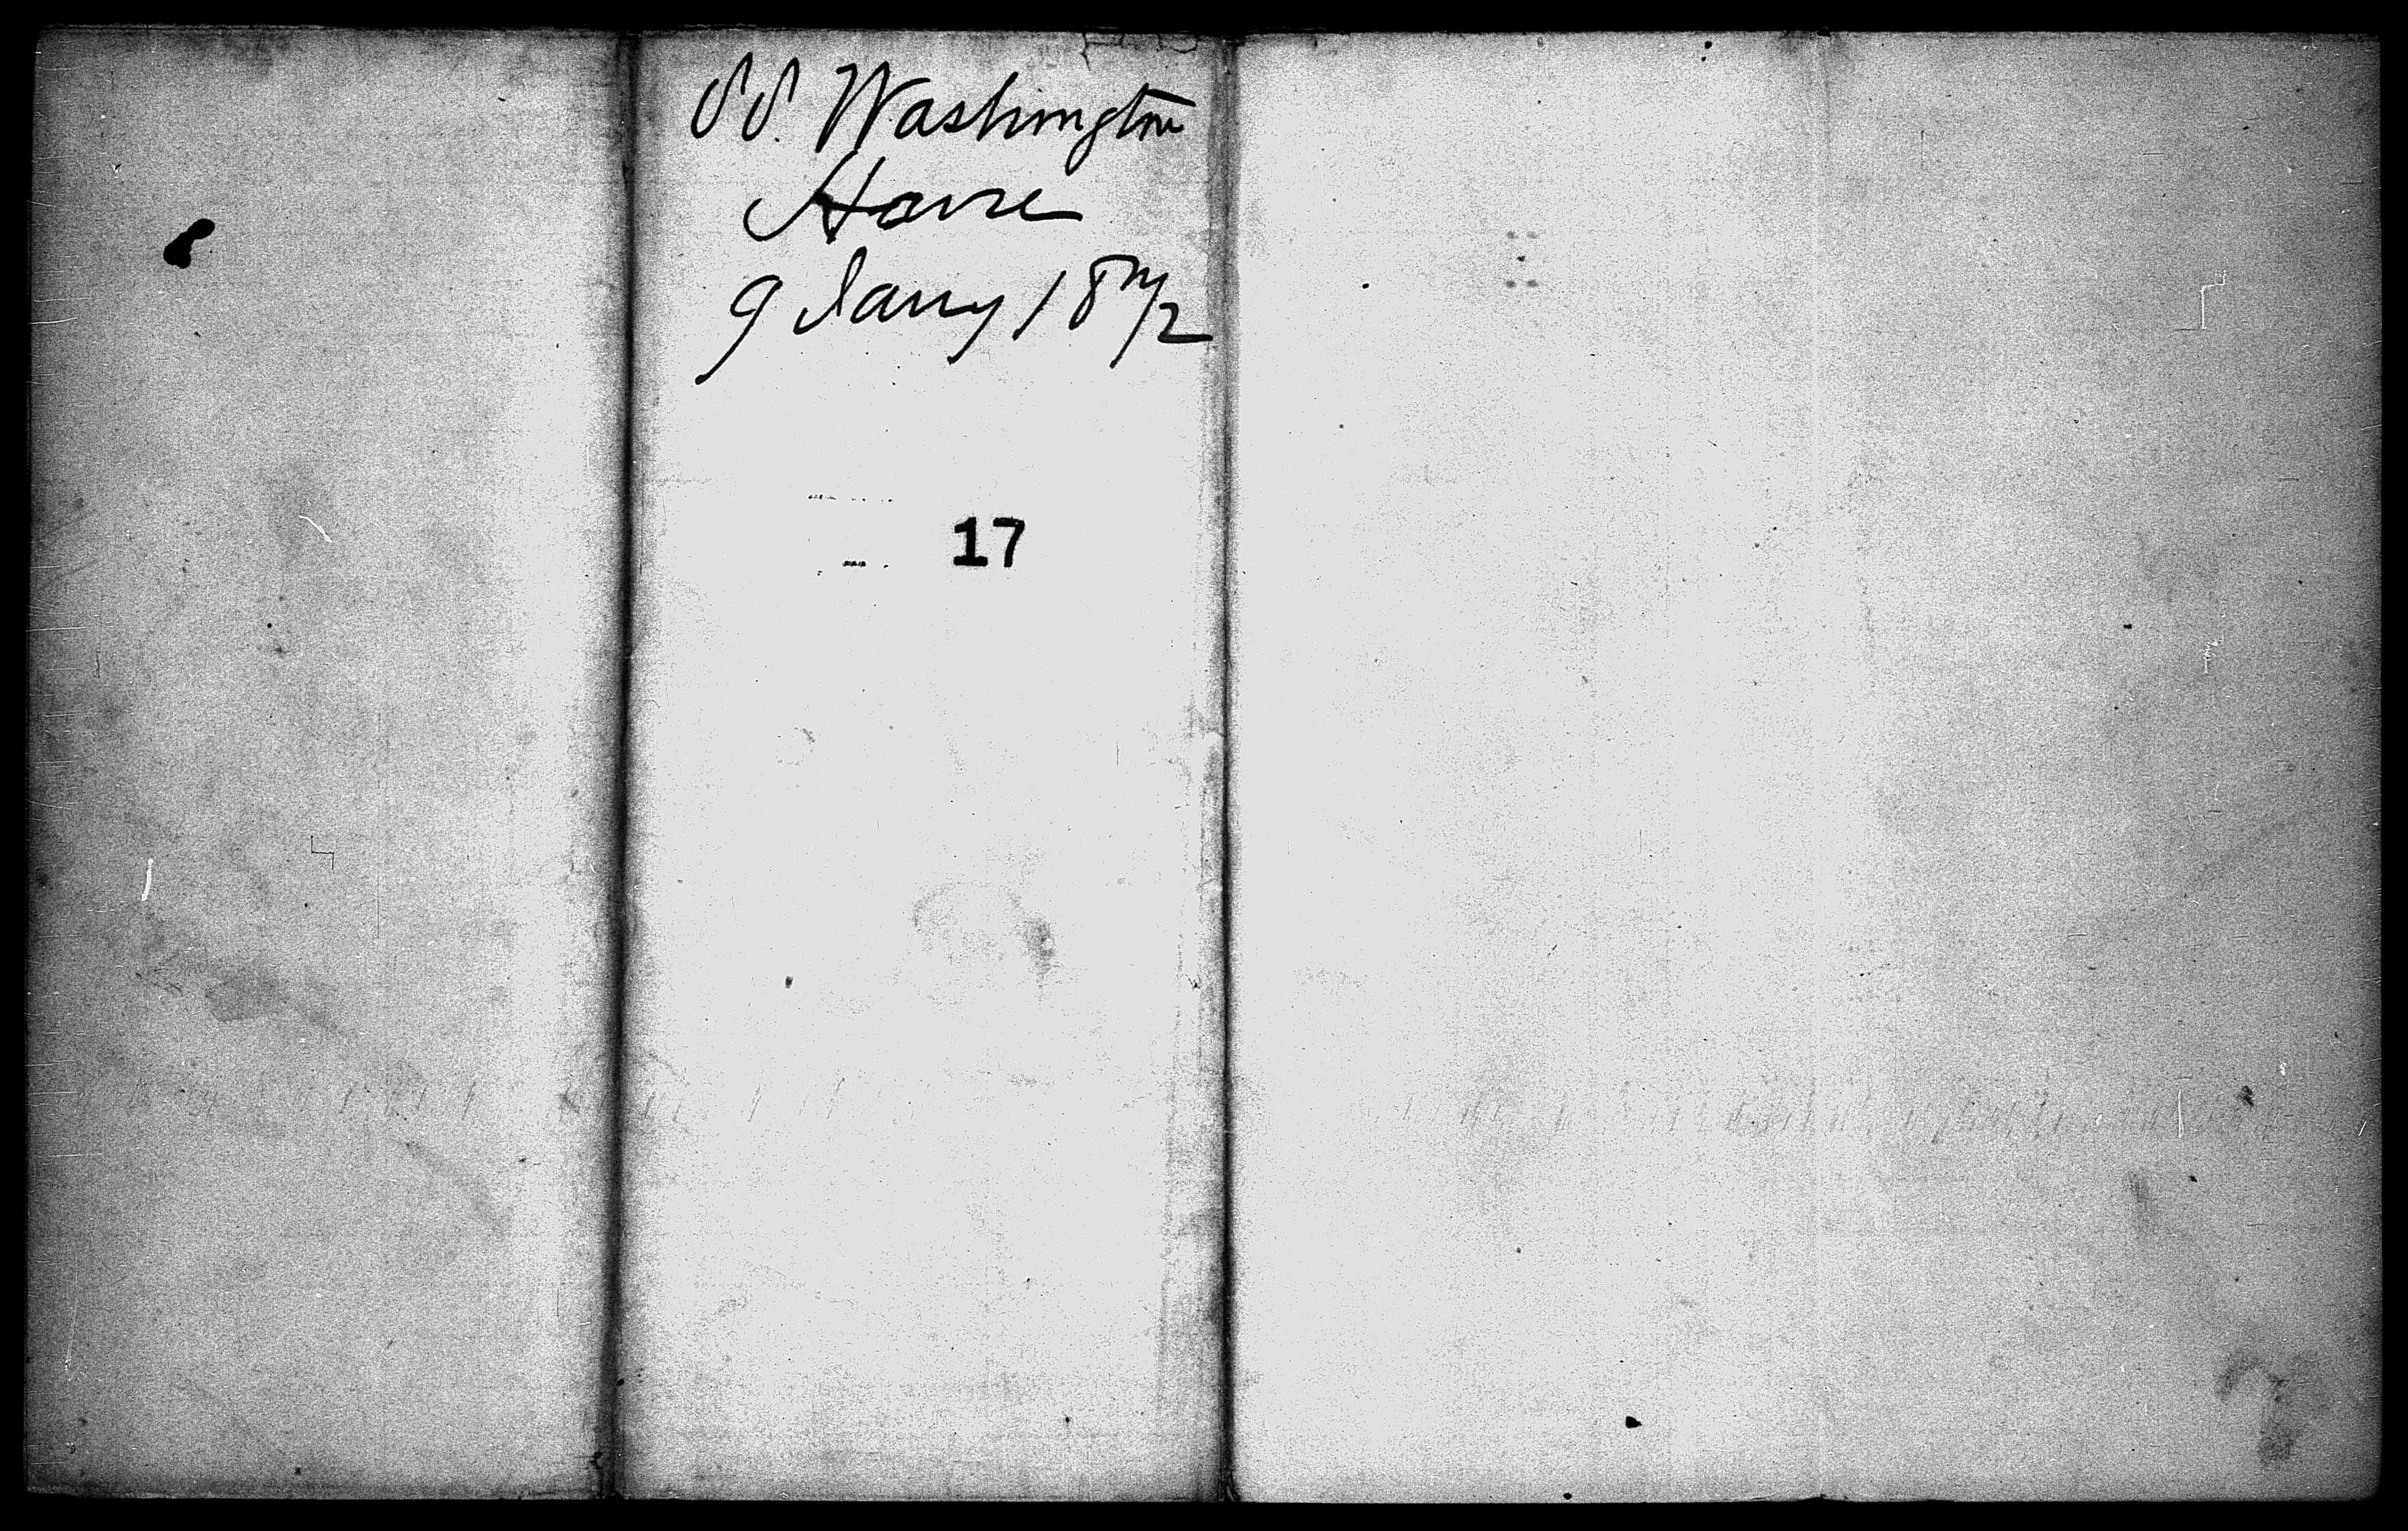 SS. Washington
Havre
9 Jany 1872
17